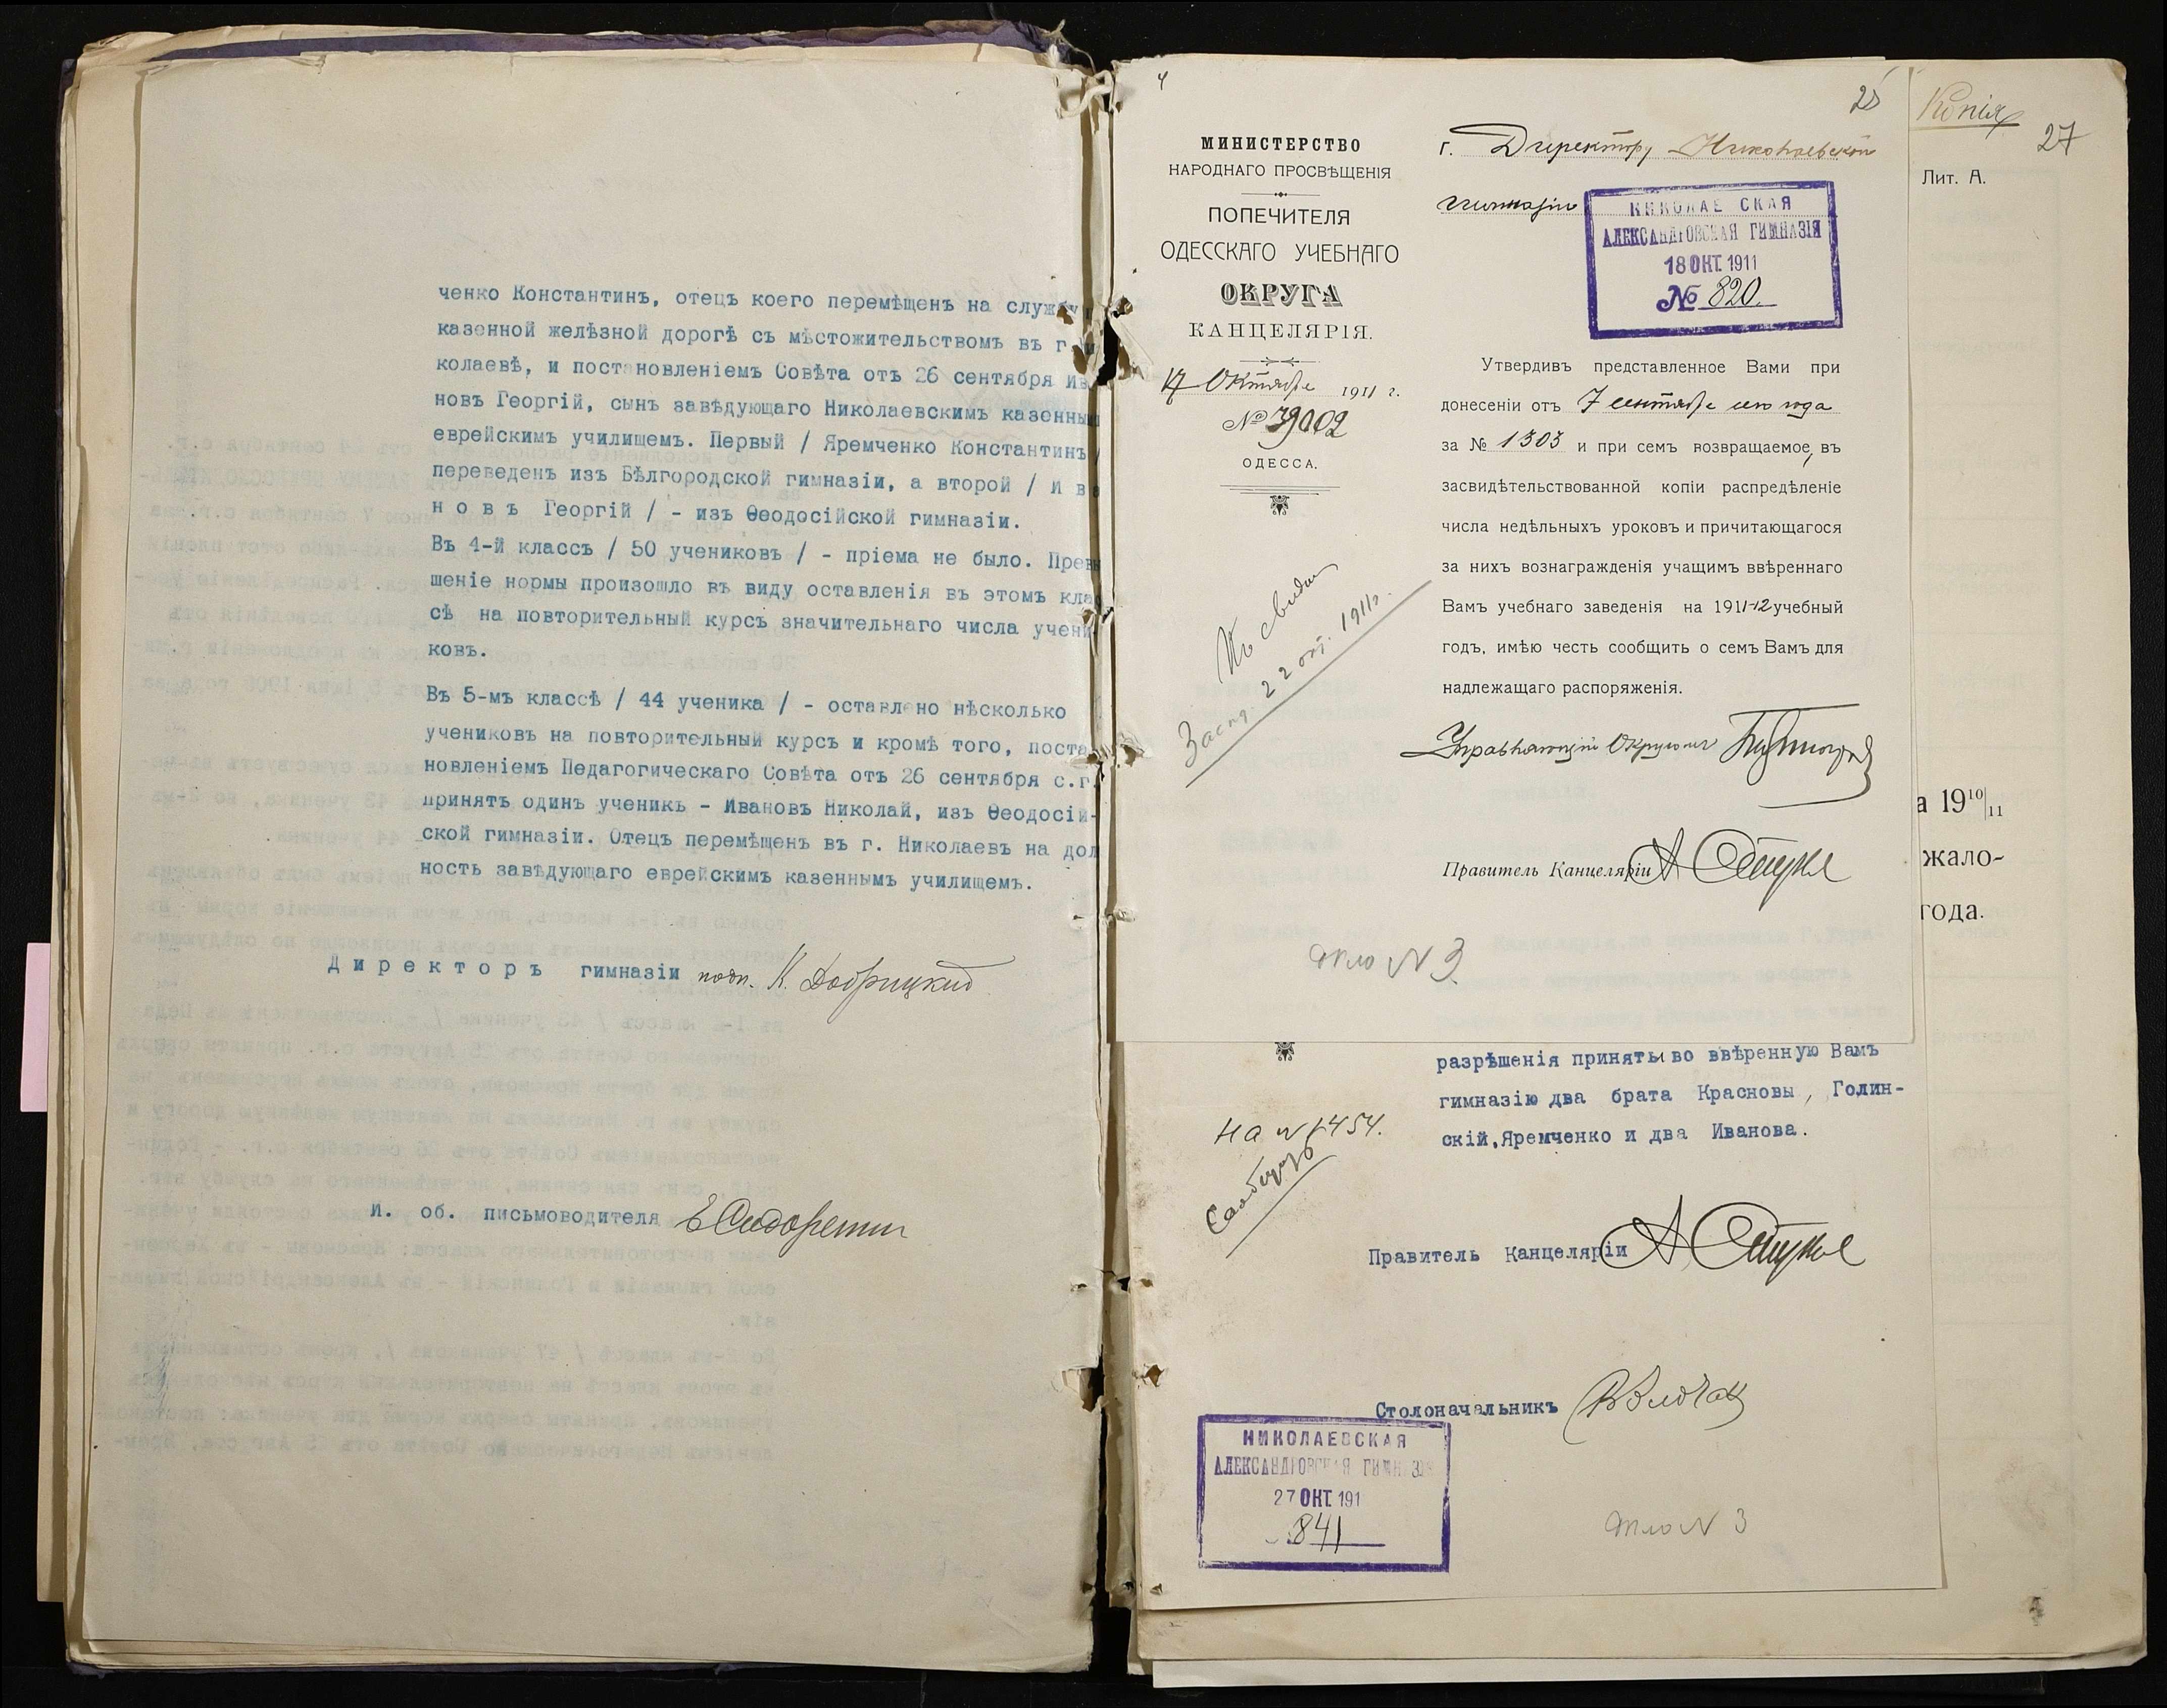 ченко Константинъ, отецъ коего перемѣщенъ на службу
казенной желѣзной дорогѣ съ мѣстожительствомъ въ г.
колаевѣ, и постановленіемъ Совѣта отъ 26 сентября Ив
новъ Георгій, сынъ завѣдующаго Николаевскимъ казеннымъ
еврейскимъ училищемъ. Первый / Яремченко Константинъ /
переведенъ изъ Бѣлгородской гимназіи, а второй / И в
н о в ъ Георгій / - изъ Ѳеодосійской гимназіи.
Въ 4-й классъ / 50 учениковъ / - пріема не было. Превы
шеніе нормы произошло въ виду оставленія въ этомъ клас
сѣ на повторительный курсъ значительнаго числа учени
ковъ.
Въ 5-мъ классѣ / 44 ученика / - оставлено нѣсколько
учениковъ на повторительный курсъ и кромѣ того, поста
новленіемъ Педагогическаго Совѣта отъ 26 сентября с.г.
принятъ одинъ ученикъ - Ивановъ Николай, изъ Ѳеодосій-
ской гимназіи. Отецъ перемѣщенъ въ г. Николаевъ на дол
ность завѣдующаго еврейскимъ казеннымъ училищемъ.
Д и р е к т о р ъ гимназіи подп. К. Добрицкій
И. об. письмоводителя
4
25
МИНИСТЕРСТВО
НАРОДНАГО ПРОСВѢЩЕНІЯ
ПОПЕЧИТЕЛЯ
ОДЕССКАГО УЧЕБНАГО
ОКРУГА
КАНЦЕЛЯРІЯ.
17 Октября 1911 г.
№ 39002
ОДЕССА.
г. Директору Николаевской
гимназіи
НИКОЛАЕ СКАЯ
АЛЕКСАНДРОВСКАЯ ГИМНАЗІЯ
18 ОКТ. 1911
№ 820
Утвердивъ представленное Вами при
донесеніи отъ 7 сентября сего года
за № 1303 и при семъ возвращаемое, въ
засвидѣтельствованной копіи распредѣленіе
числа недѣльныхъ уроковъ и причитающагося
за нихъ вознагражденія учащимъ ввѣреннаго
Вамъ учебнаго заведенія на 1911-12 учебный
годъ, имѣю честь сообщить о семъ Вамъ для
надлежащаго распоряженія.
Управляющій Округомъ
Правитель Канцеляріи
22 окт. 1911 г.
Дѣло N 3.
разрѣшенія приняты во ввѣренную Вамъ
гимназію два брата Красновы, Голин-
скій, Яремченко и два Иванова.
На N 1454.
Правитель Канцеляріи
Столоначальникъ
НИКОЛАЕВСКАЯ
АЛЕКСАНДРОВСКАЯ ГИМНАЗІЯ
27 ОКТ. 191
841
Дѣло N 3
Копія
27
Лит. А.
а 1910/11
жало-
года.